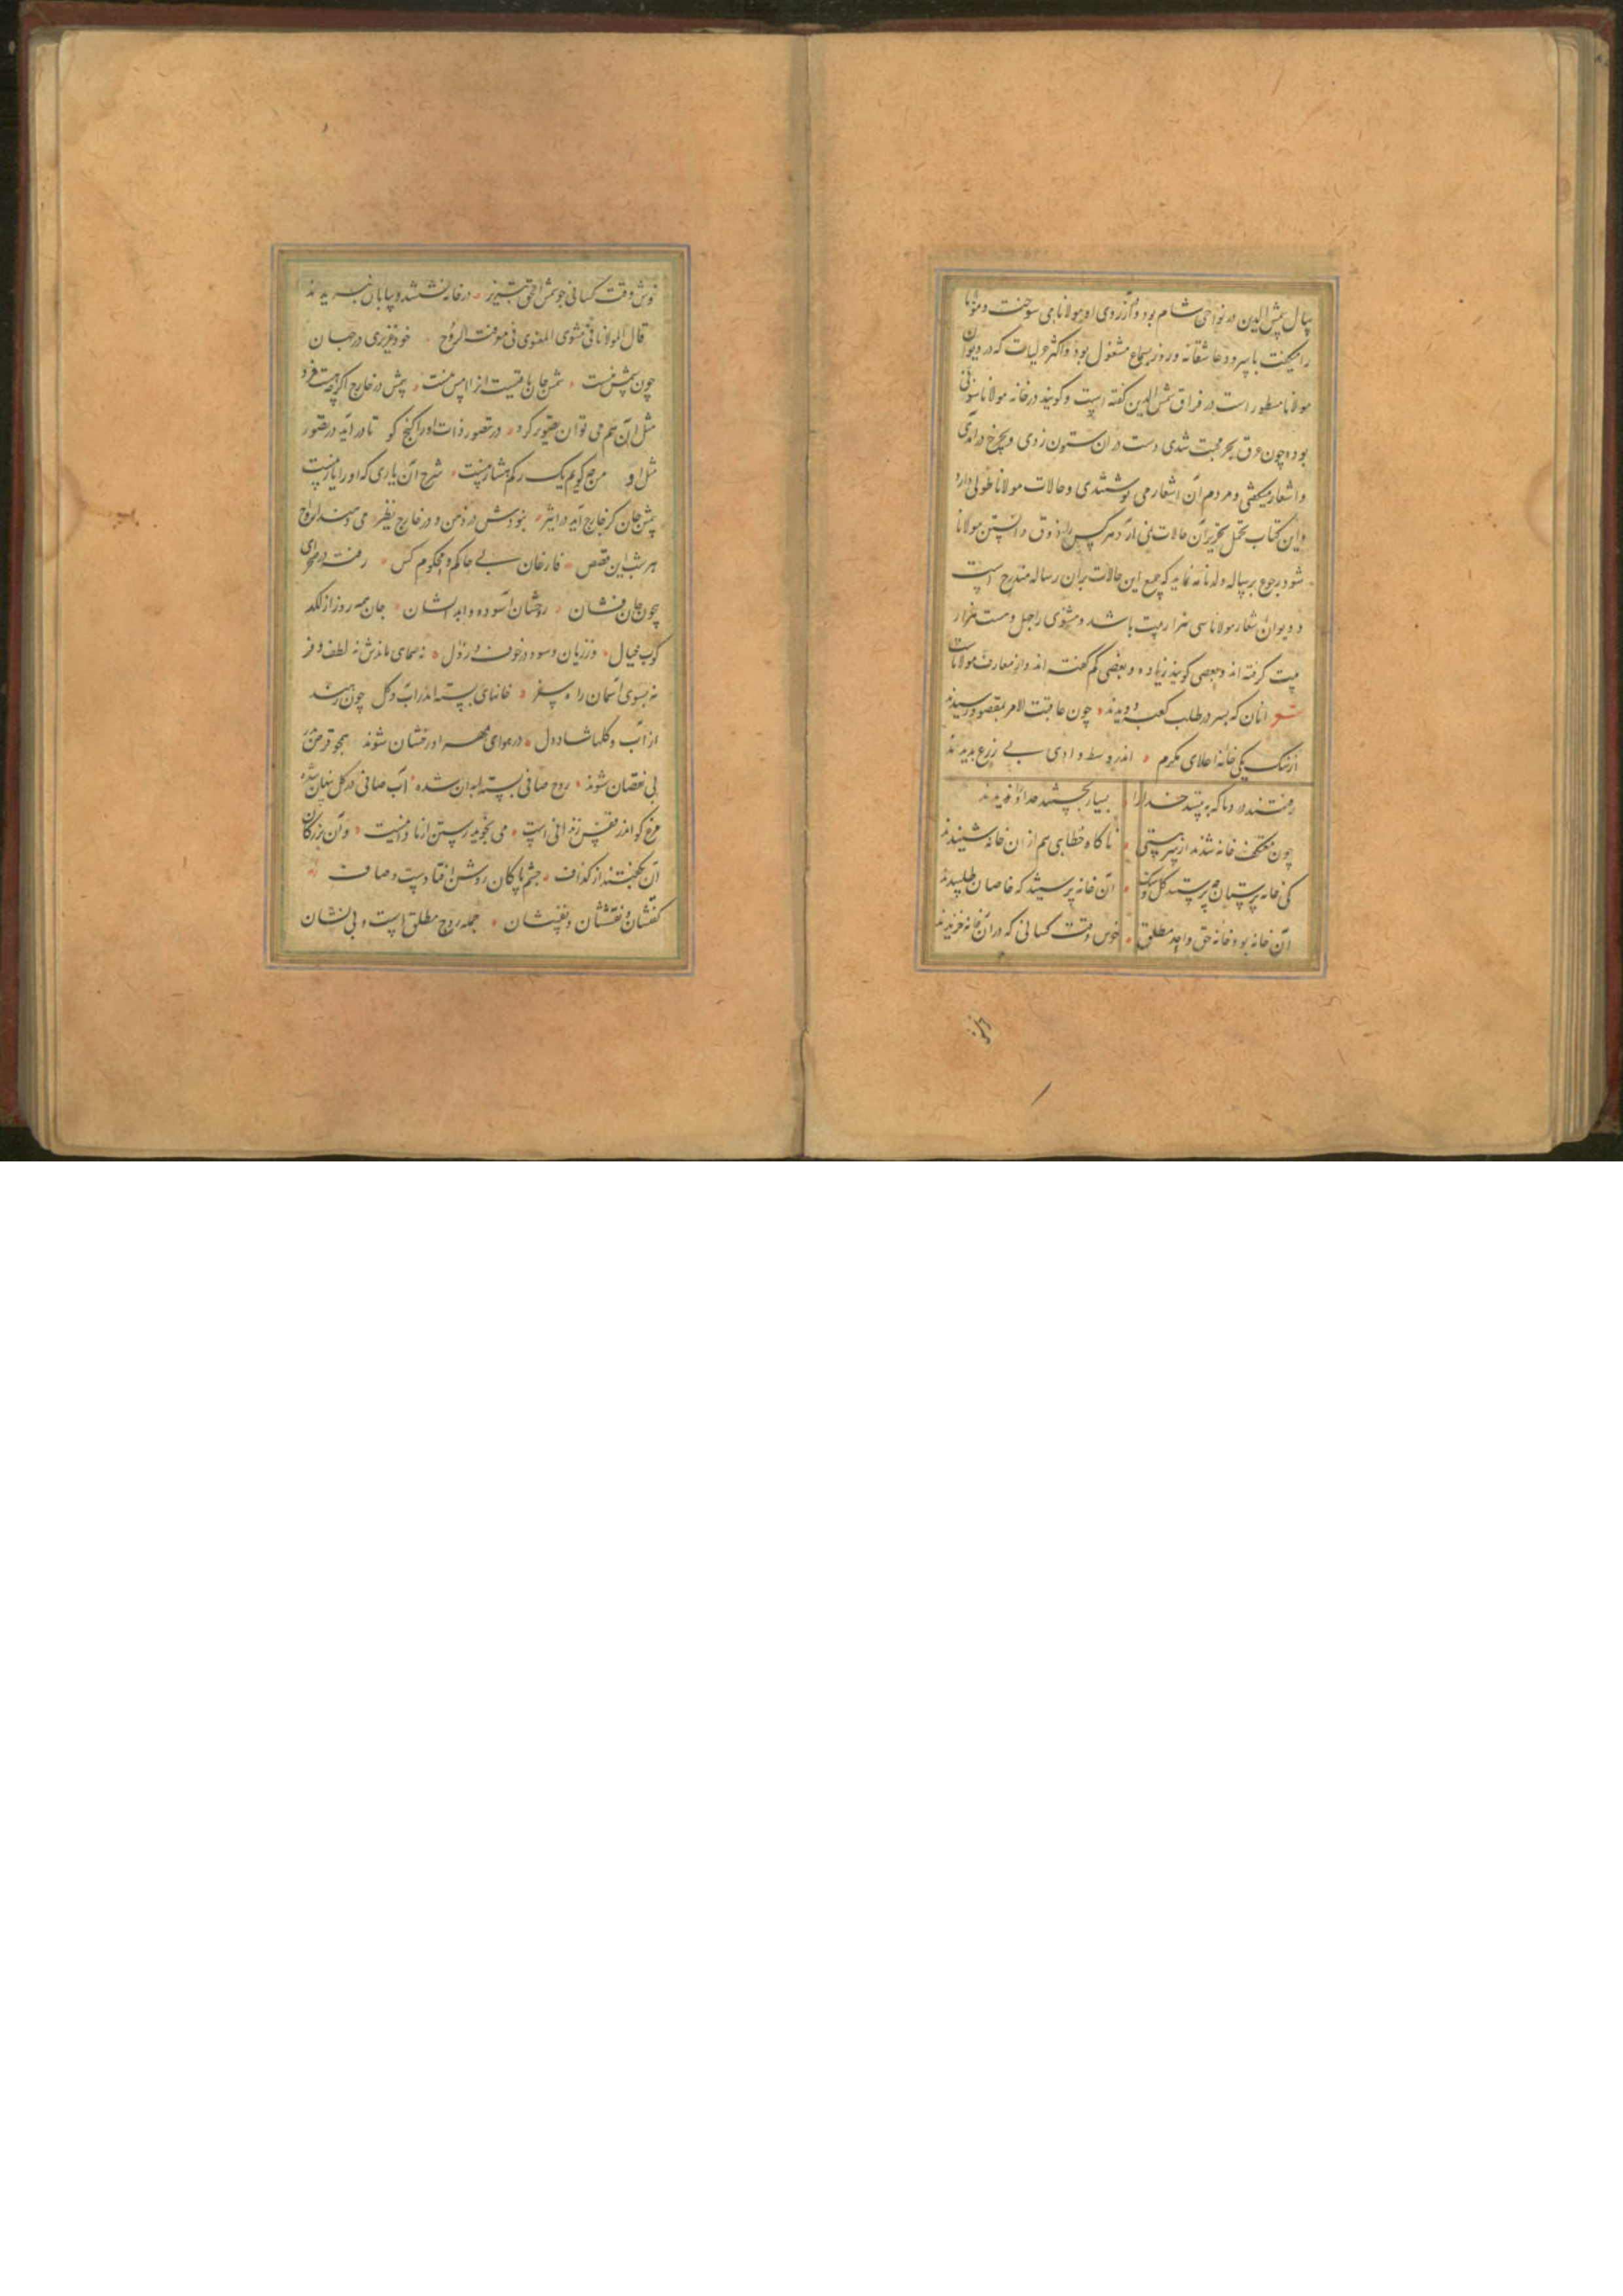 سال شمس الدین در نواحی شام بود و از آرزوی او مولانا می سوخت و مولانا
را میگفت با سرود عاشقانه و روز بسماع مشغول بود و اکثر غزلیات که در دیوان
مولانا مسطور است در فراق شمس الدین گفته است و گویند در خانه مولانا ستونی
بود و چون غرق بحر محبت شدی دست در ان ستون زدی و بچرخ درآمدی
و اشعار میگفتی و مردم آن اشعار می نوشتندی و حالات مولانا طولی دارد
و این کتاب تحمل تحریر آن حالات نمی آرد هر کس را ذوق دانستن مولانا
شود رجوع برساله ولدنامه نماید که جمیع این حالات بران رساله مندرج است
و دیوان اشعار مولانا سی هزار بیت باشد و مثنوی را چهل و هشت هزار
بیت گرفته اند و بعضی گویند زیاده و بعضی کم گفته اند و از معارف مولاناست
شعر انان که بسر در طلب کعبه دویدند چون عاقبت الامر بمقصود رسیدند
از سنگ یکی خانه اعلای مکرم اندر وسط وادی بی زرع بدیدند
رفتند درو تا که ببینند خدا را بسیار بجستند خدا را و ندیدند
چون معتکف خانه شدند از سر هستی ناگاه خطابی هم از ان خانه شنیدند
کی خانه پرستان چه پرستید گل و سنگ آن خانه پرستید که خاصان طلبیدند
آن خانه بود خانه حق واحد مطلق خوش وقت کسانی که در آن خانه خزیدند
خوش وقت کسانی چو شمس الحق تبریز در خانه نشستند و بیابان نبریدند
قال المولانا فی مثنوی المعنوی فی معرفت الروح خود غریبی در جهان
چون شمس نیست شمس جان باقیست انرا امس نیست شمس در خارج اگرچه هست فرد
مثل آن هم می توان تصویر کرد در تصور ذات او را گنج کو تا در آید در تصور
مثل او من چگویم یک رگم هشیار نیست شرح آن یاری که او را یار نیست
شمس جان کز خارج آید در اثیر نبودش در ذهن و در خارج نظیر می رهند ارواح
هر شب این قفص فارغان بی حاکم و محکوم کس رفته در صحرای
بیچون جان شان روحشان آسوده و ابدانشان جان همه روز از لگد
کوب خیال وز زیان و سود و ز خوف زوال نه صفای ماندش نه لطف و فر
نه بسوی آسمان راه سفر جانهای بسته اندر آب و گل چون رهند
از آب و گلها شاد دل در هوای مهر او رقشان شوند همچو قرص بدر
بی نقصان شوند روح صافی بسته ابدان شده آب صافی در گل پنهان شده
مرغ کو اندر قفس زندانی است می نجوید رستن از نادانیست و آن بزرگان
آن نگفتند از گذاف جسم پاکان روشن افتادست و صاف
گفتشان و نقششان و نفسشان جمله روح مطلق است و بی نشان